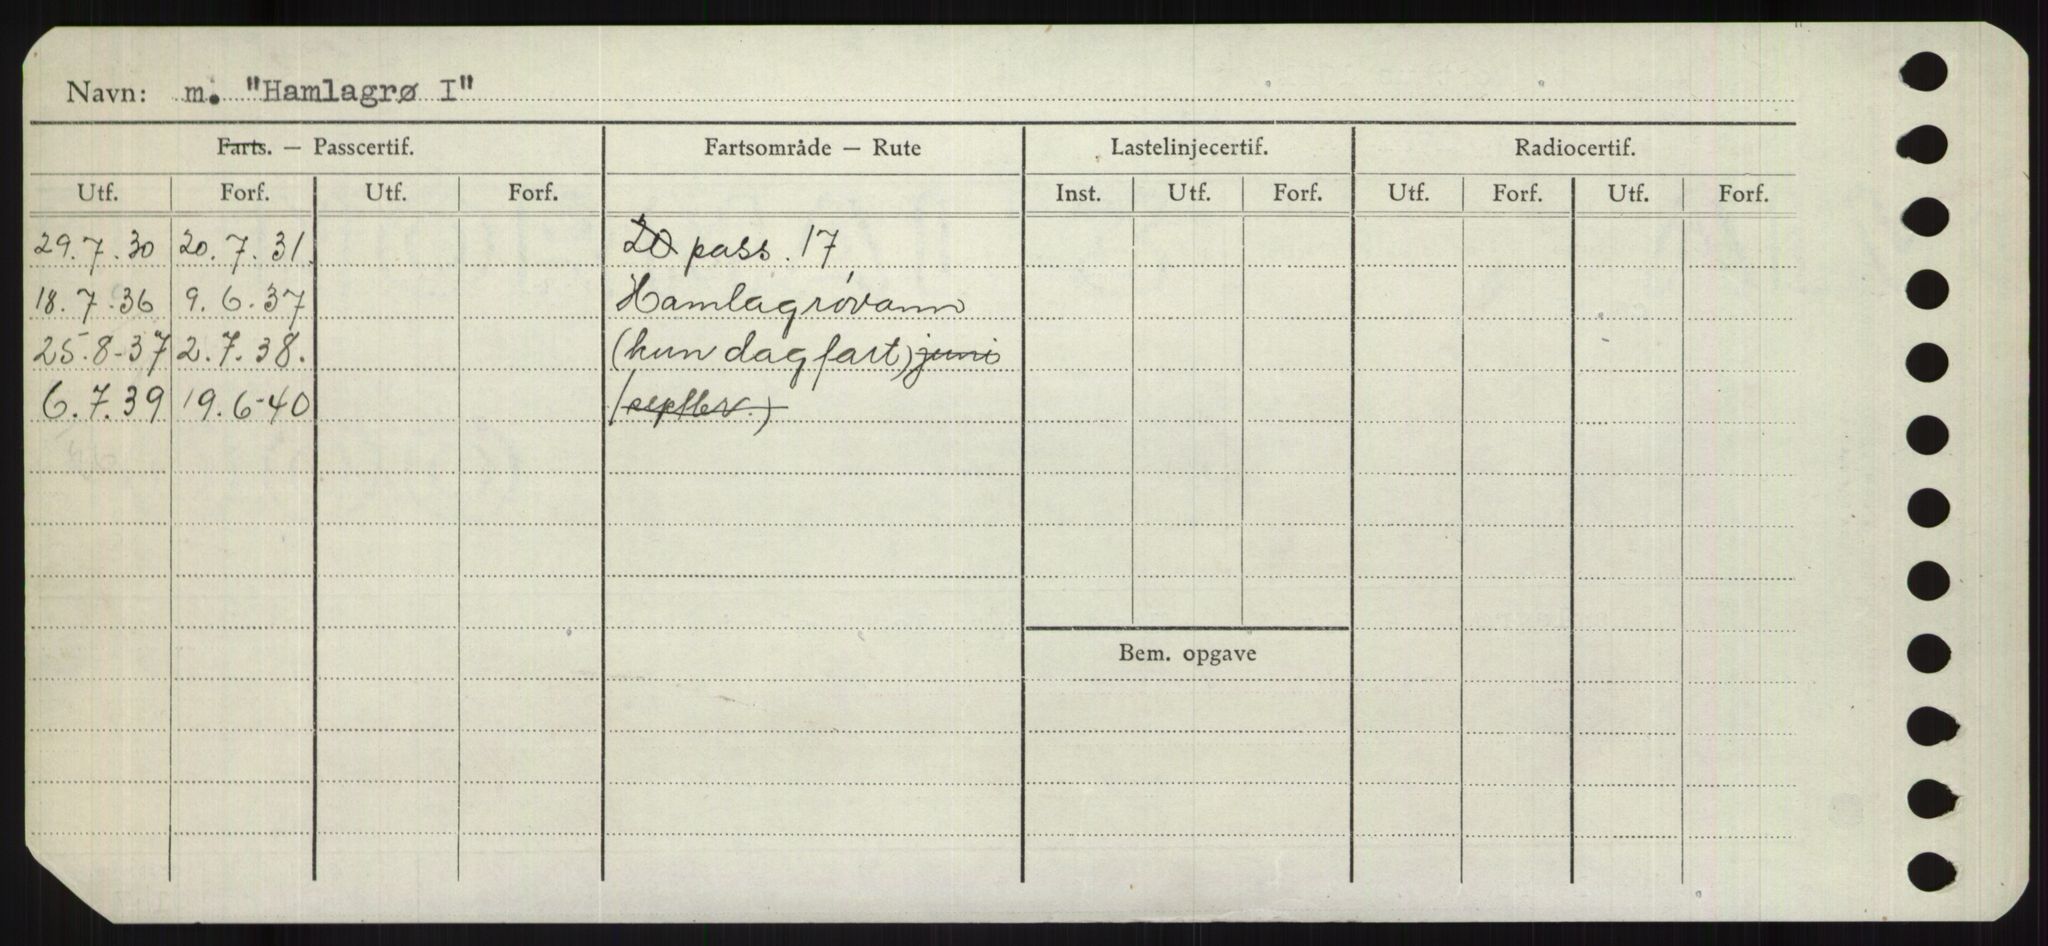 Navn: m. "Hamlagrø I"
Farts. — Passcertif. Fartsområde — Rute Lastelinjecertif. Radiocertif.
Utf. Forf. Utf. Forf. Inst. Utf. Forf. Utf. Forf. Utf. Forf.
29.7.30 20.7.31. 20 pass. 17
18.7.36 9.6.37 Hamlagrøvann
25.8-37 2.7.38. (kun dagfart) juni
6.7.39 19.6-40 /septbr.)
Bem. opgave